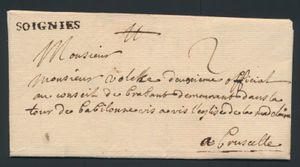 SOIGNIES
Monsieur
Monsieur deuxieme official
au conseil de Brabant demeurant dans la
tour de babilonne vis a vis l'eglise de la
a Bruxelle